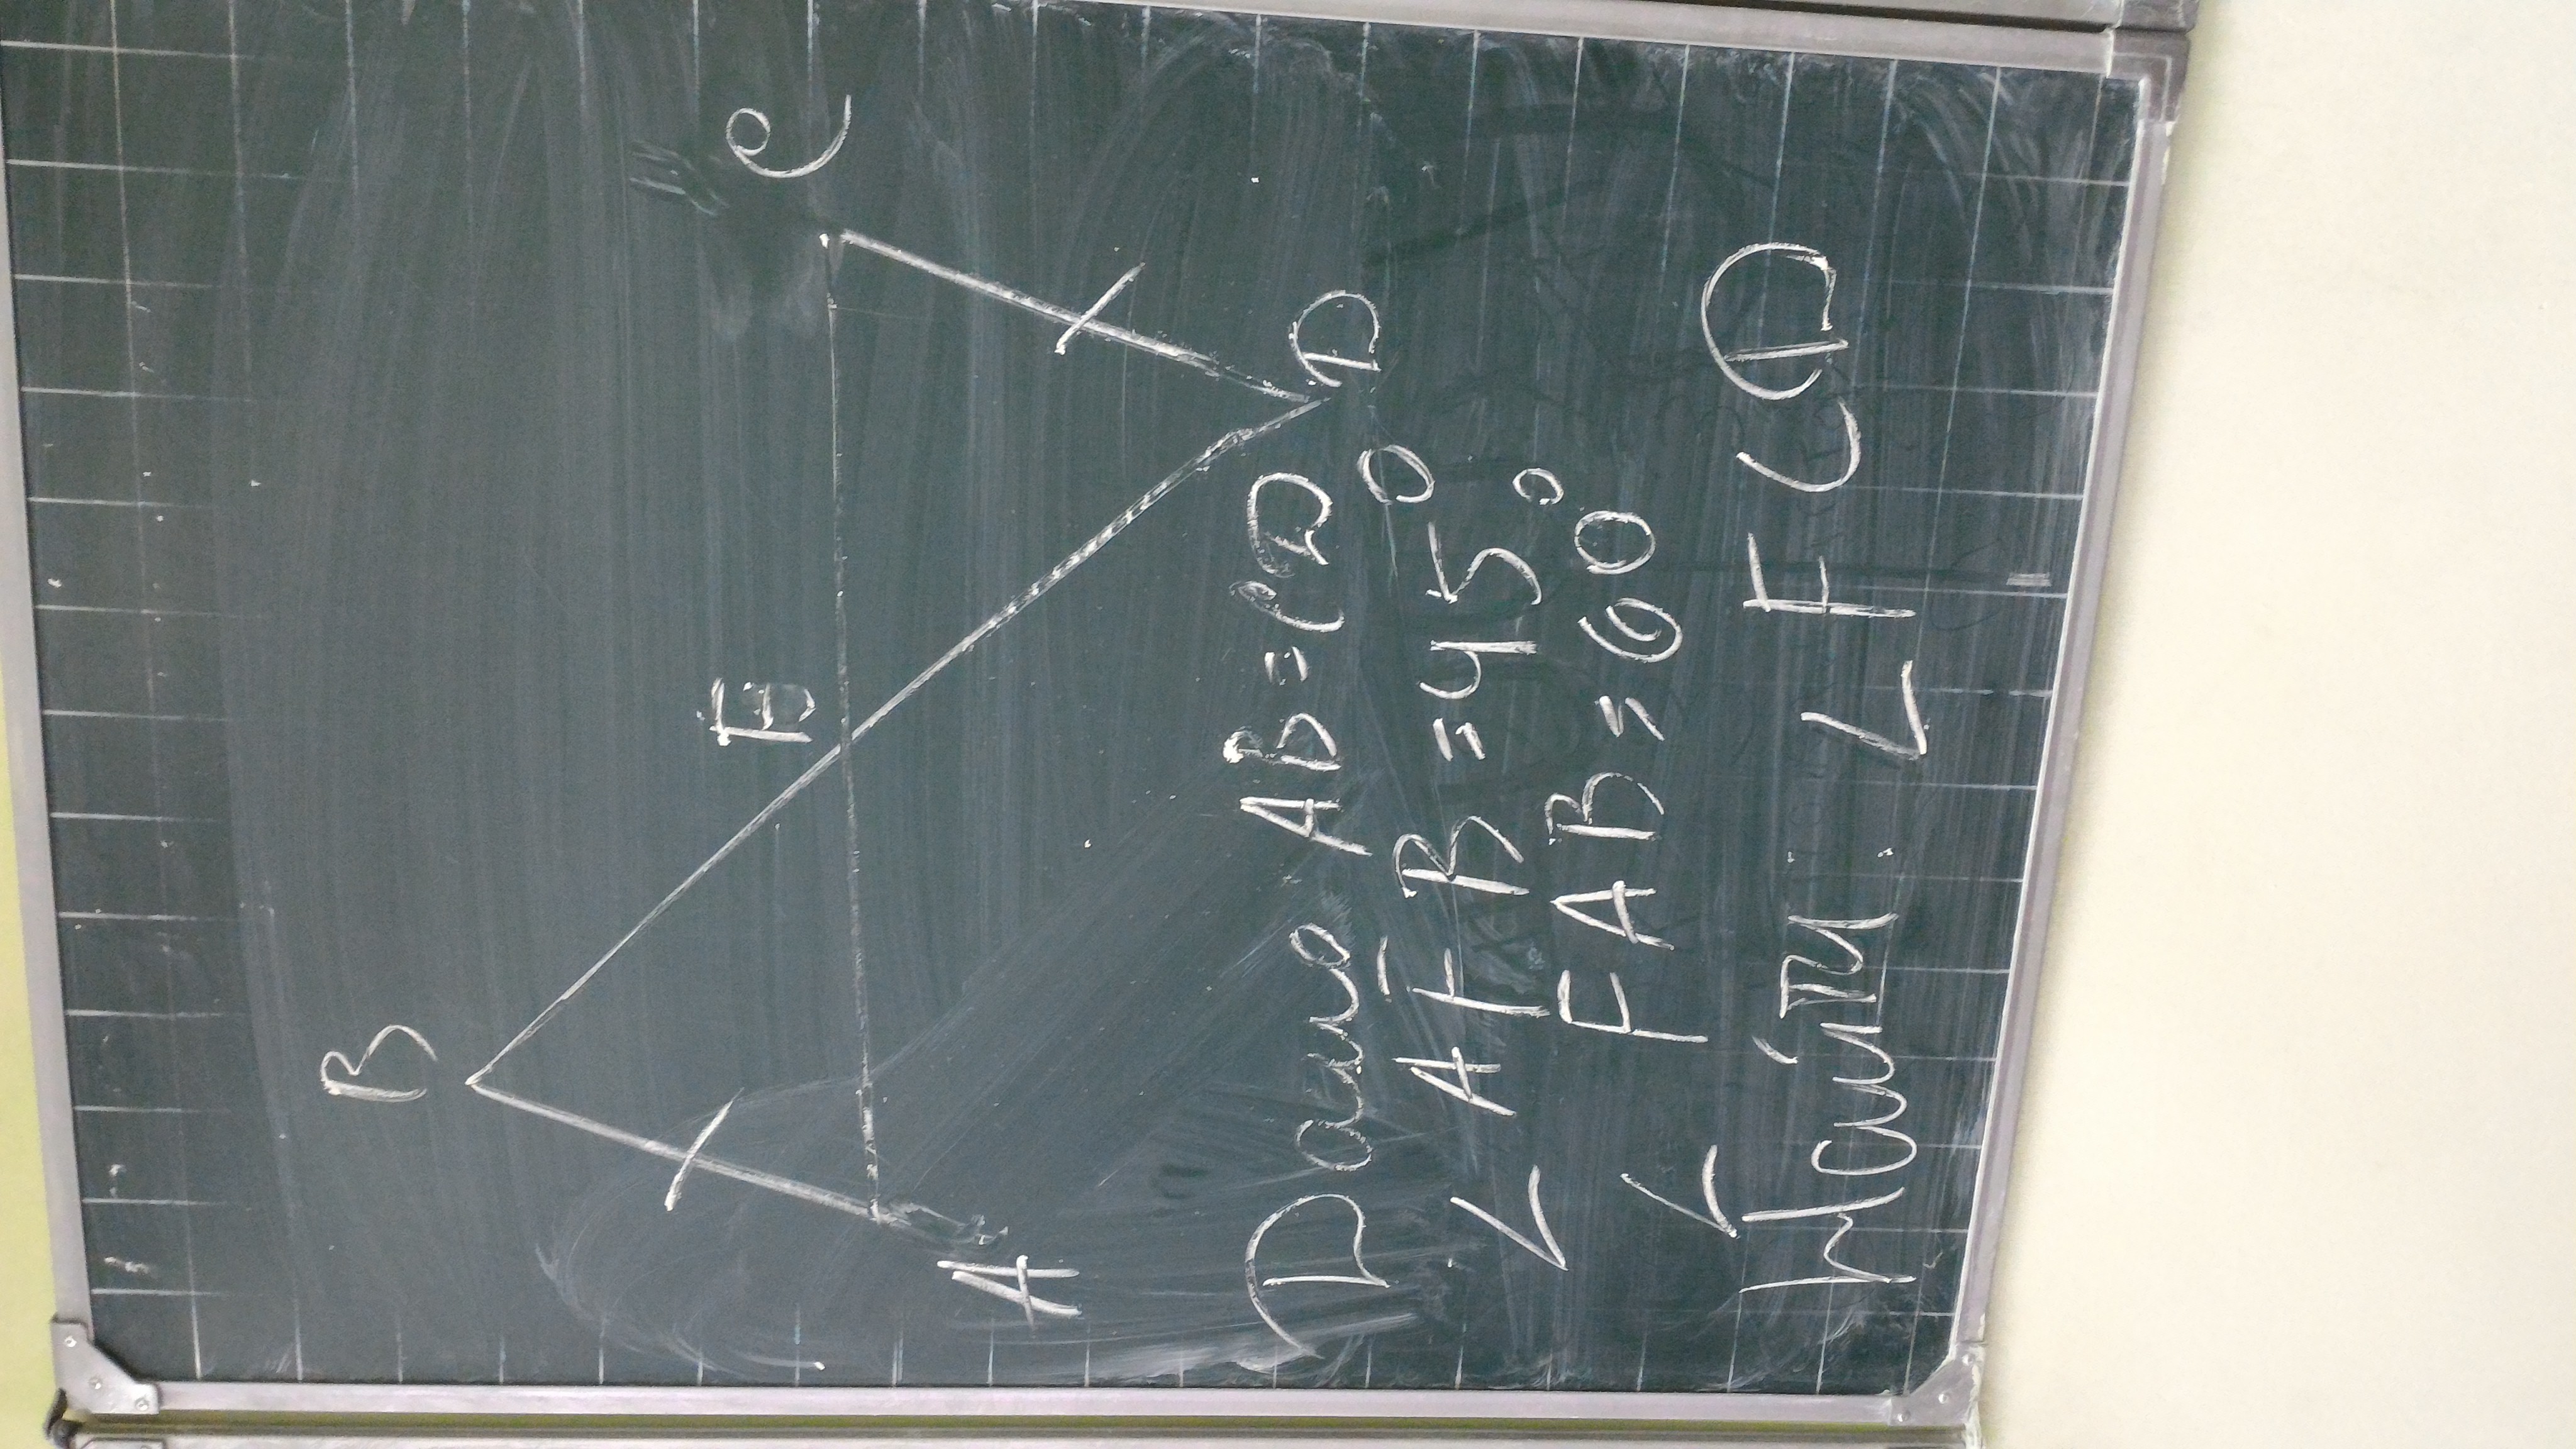 B
C
F
A
D
Дано AB=CD
∠ AFB =45°
∠ FAB=60°
Найти ∠ FCD